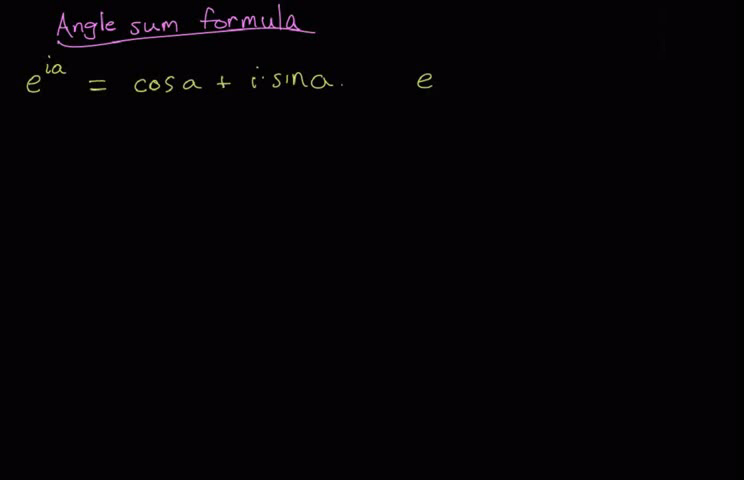 Angle sum formula
e^{ia} = cos a + i·sin a. e